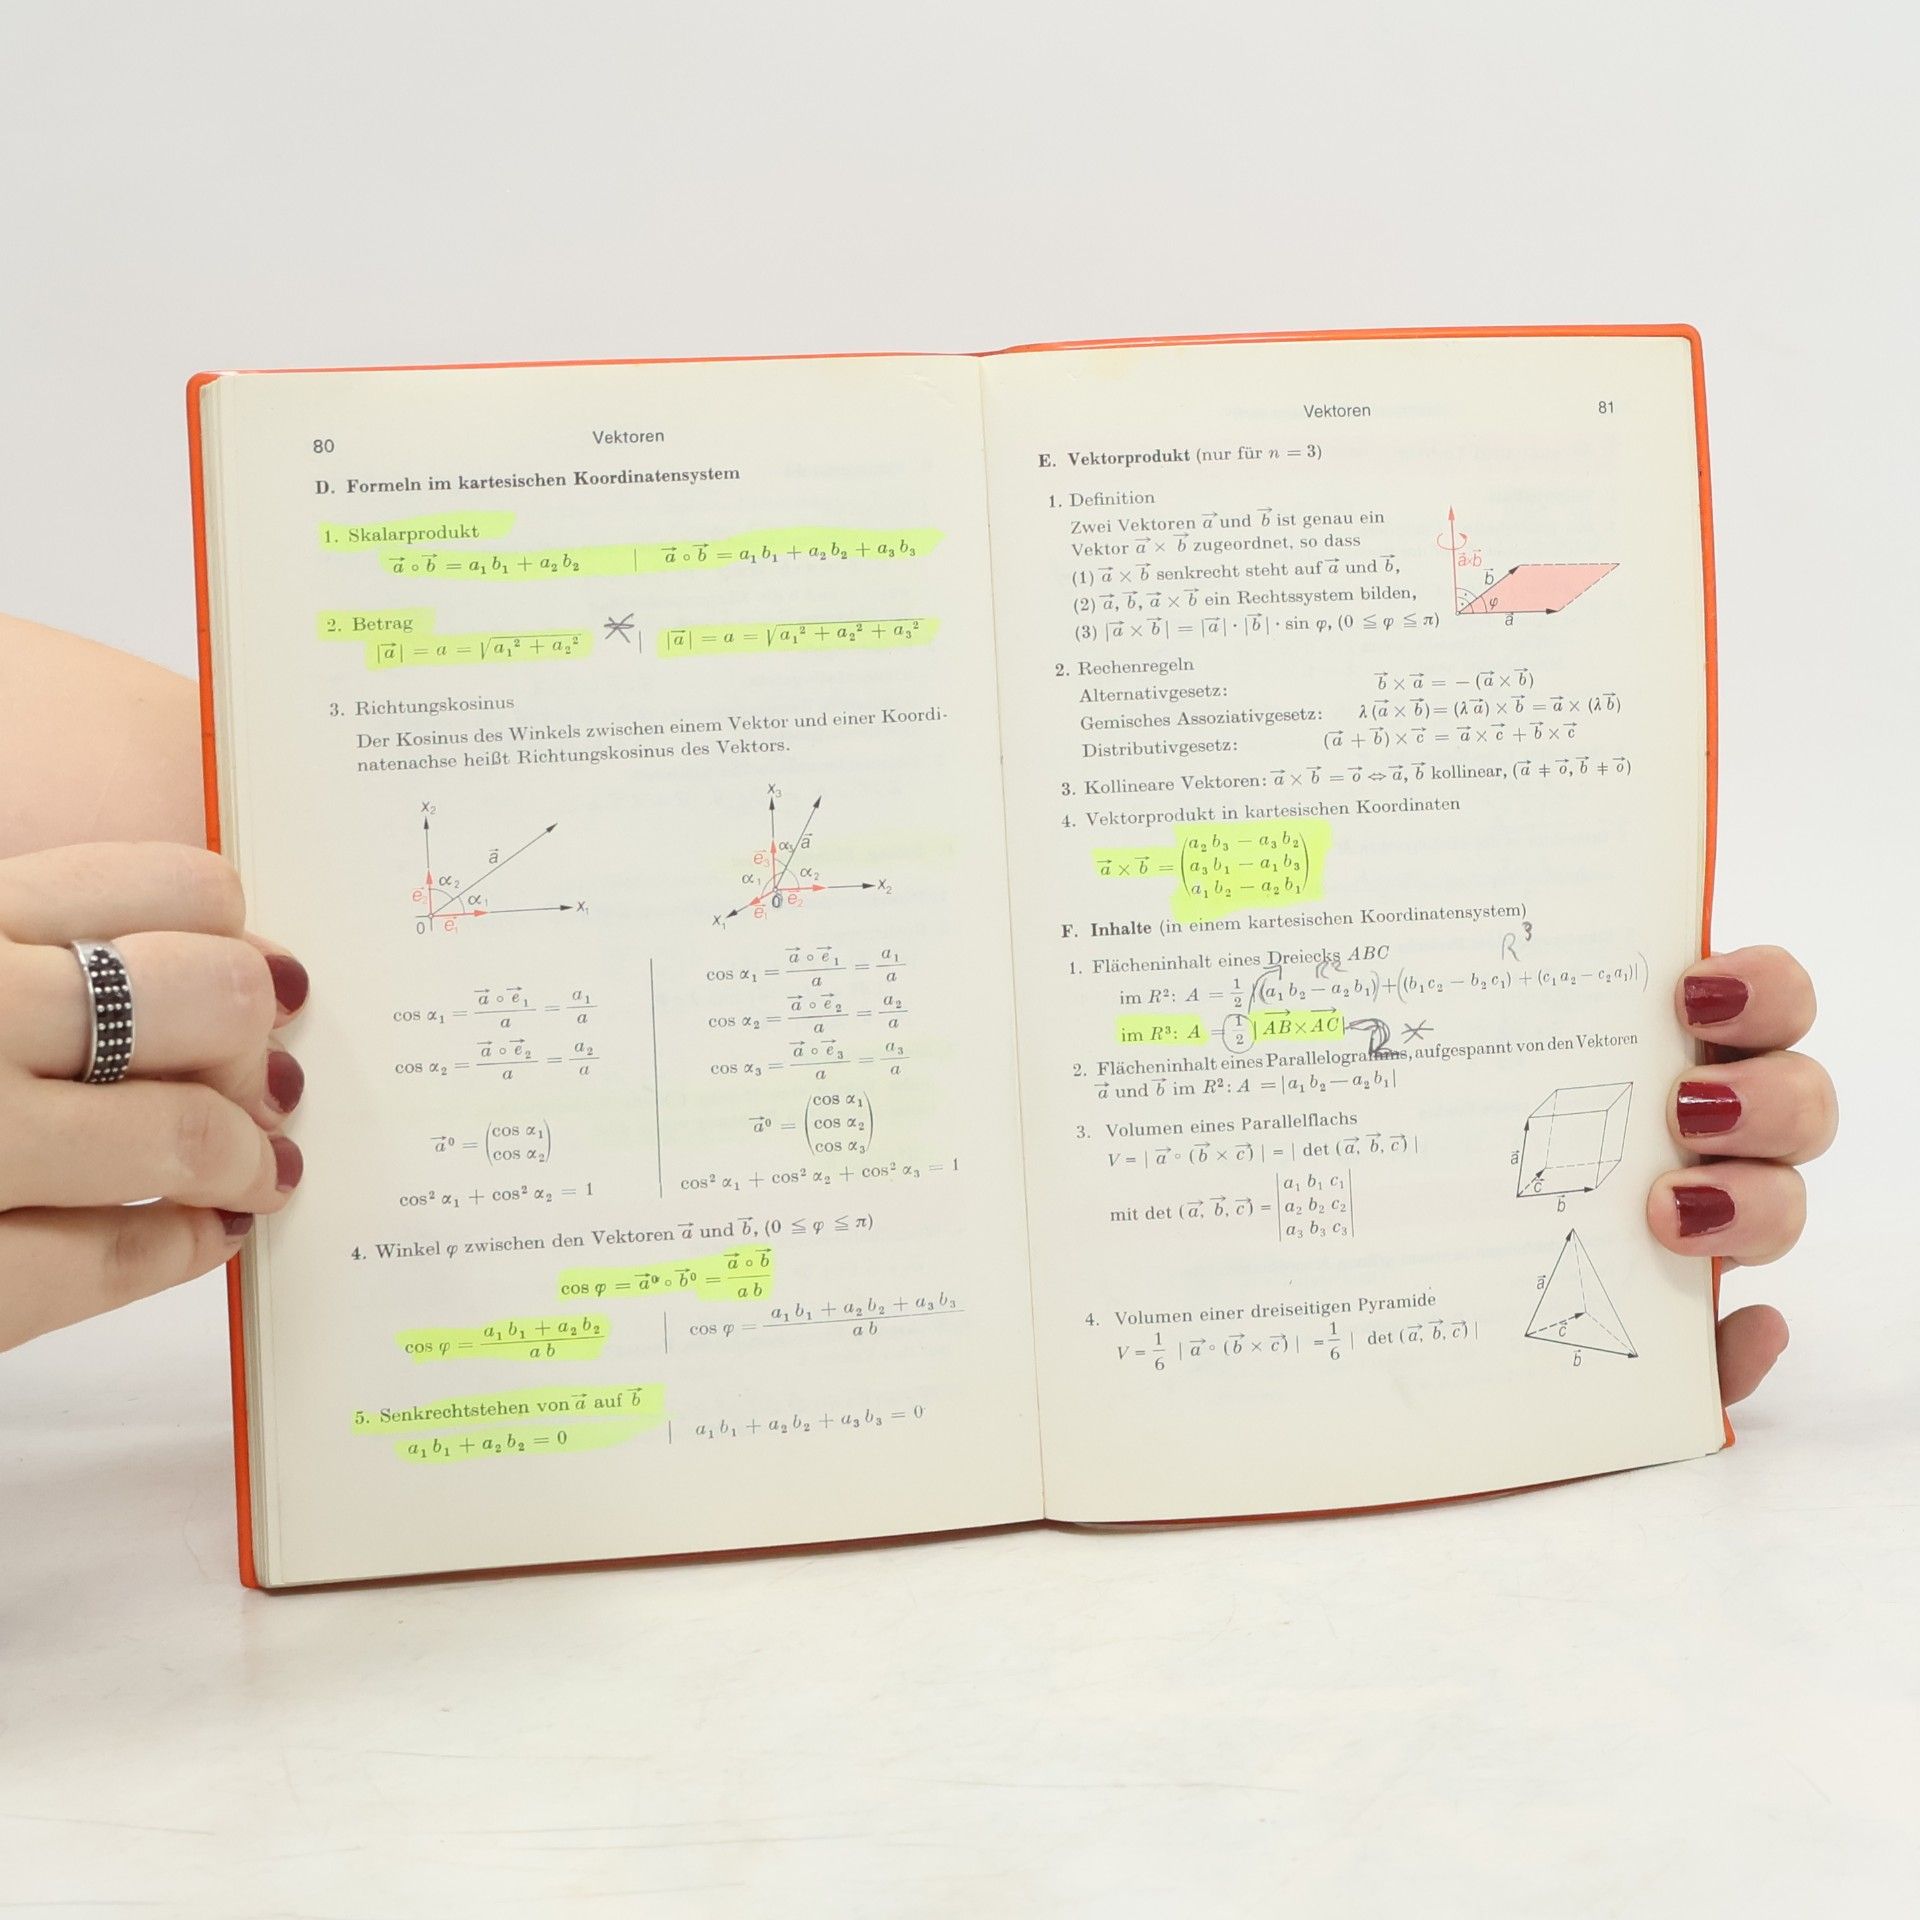 80
Vektoren
D. Formeln im kartesischen Koordinatensystem
1. Skalarprodukt
a⃗ ∘ b⃗ = a₁ b₁ + a₂ b₂ | a⃗ ∘ b⃗ = a₁ b₁ + a₂ b₂ + a₃ b₃
2. Betrag
|a⃗| = a = √(a₁² + a₂²) | |a⃗| = a = √(a₁² + a₂² + a₃²)
3. Richtungskosinus
Der Kosinus des Winkels zwischen einem Vektor und einer Koordi-
natenachse heißt Richtungskosinus des Vektors.
x₂ a⃗ α₂ α₁ e⃗₁ 0 x₁
x₃ a⃗ α₃ e⃗₃ α₁ α₂ x₂ e⃗₂ e⃗₁ 0 x₁
cos α₁ = (a⃗ ∘ e⃗₁)/a = a₁/a
cos α₂ = (a⃗ ∘ e⃗₂)/a = a₂/a
a⃗⁰ = (cos α₁ cos α₂)
cos² α₁ + cos² α₂ = 1
cos α₁ = (a⃗ ∘ e⃗₁)/a = a₁/a
cos α₂ = (a⃗ ∘ e⃗₂)/a = a₂/a
cos α₃ = (a⃗ ∘ e⃗₃)/a = a₃/a
a⃗⁰ = (cos α₁ cos α₂ cos α₃)
cos² α₁ + cos² α₂ + cos² α₃ = 1
4. Winkel φ zwischen den Vektoren a⃗ und b⃗, (0 ≦ φ ≦ π)
cos φ = a⃗⁰ ∘ b⃗⁰ = (a⃗ ∘ b⃗)/(a b)
cos φ = (a₁ b₁ + a₂ b₂)/(a b) | cos φ = (a₁ b₁ + a₂ b₂ + a₃ b₃)/(a b)
5. Senkrechtstehen von a⃗ auf b⃗
a₁ b₁ + a₂ b₂ = 0 | a₁ b₁ + a₂ b₂ + a₃ b₃ = 0
Vektoren
81
E. Vektorprodukt (nur für n = 3)
1. Definition
Zwei Vektoren a⃗ und b⃗ ist genau ein
Vektor a⃗ × b⃗ zugeordnet, so dass
(1) a⃗ × b⃗ senkrecht steht auf a⃗ und b⃗,
(2) a⃗, b⃗, a⃗ × b⃗ ein Rechtssystem bilden,
(3) |a⃗ × b⃗| = |a⃗| · |b⃗| · sin φ, (0 ≦ φ ≦ π)
a⃗×b⃗ b⃗ φ a⃗
2. Rechenregeln
Alternativgesetz: b⃗ × a⃗ = − (a⃗ × b⃗)
Gemisches Assoziativgesetz: λ (a⃗ × b⃗) = (λ a⃗) × b⃗ = a⃗ × (λ b⃗)
Distributivgesetz: (a⃗ + b⃗) × c⃗ = a⃗ × c⃗ + b⃗ × c⃗
3. Kollineare Vektoren: a⃗ × b⃗ = o⃗ ⇔ a⃗, b⃗ kollinear, (a⃗ ≠ o⃗, b⃗ ≠ o⃗)
4. Vektorprodukt in kartesischen Koordinaten
a⃗ × b⃗ = (a₂ b₃ − a₃ b₂
a₃ b₁ − a₁ b₃
a₁ b₂ − a₂ b₁)
F. Inhalte (in einem kartesischen Koordinatensystem)
R³
1. Flächeninhalt eines Dreiecks ABC
R²
im R²: A = 1/2 |(a₁ b₂ − a₂ b₁) + (b₁ c₂ − b₂ c₁) + (c₁ a₂ − c₂ a₁)|
im R³: A = 1/2 |AB⃗ × AC⃗|
2. Flächeninhalt eines Parallelogramms, aufgespannt von den Vektoren
a⃗ und b⃗ im R²: A = |a₁ b₂ − a₂ b₁|
3. Volumen eines Parallelflachs
V = | a⃗ ∘ (b⃗ × c⃗) | = | det (a⃗, b⃗, c⃗) |
mit det (a⃗, b⃗, c⃗) = |a₁ b₁ c₁
a₂ b₂ c₂
a₃ b₃ c₃|
a⃗ c⃗ b⃗
4. Volumen einer dreiseitigen Pyramide
V = 1/6 | a⃗ ∘ (b⃗ × c⃗) | = 1/6 | det (a⃗, b⃗, c⃗) |
a⃗ c⃗ b⃗